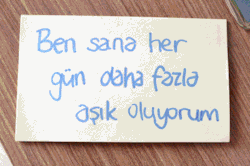 Ben sana her
gün daha fazla
aşık oluyorum